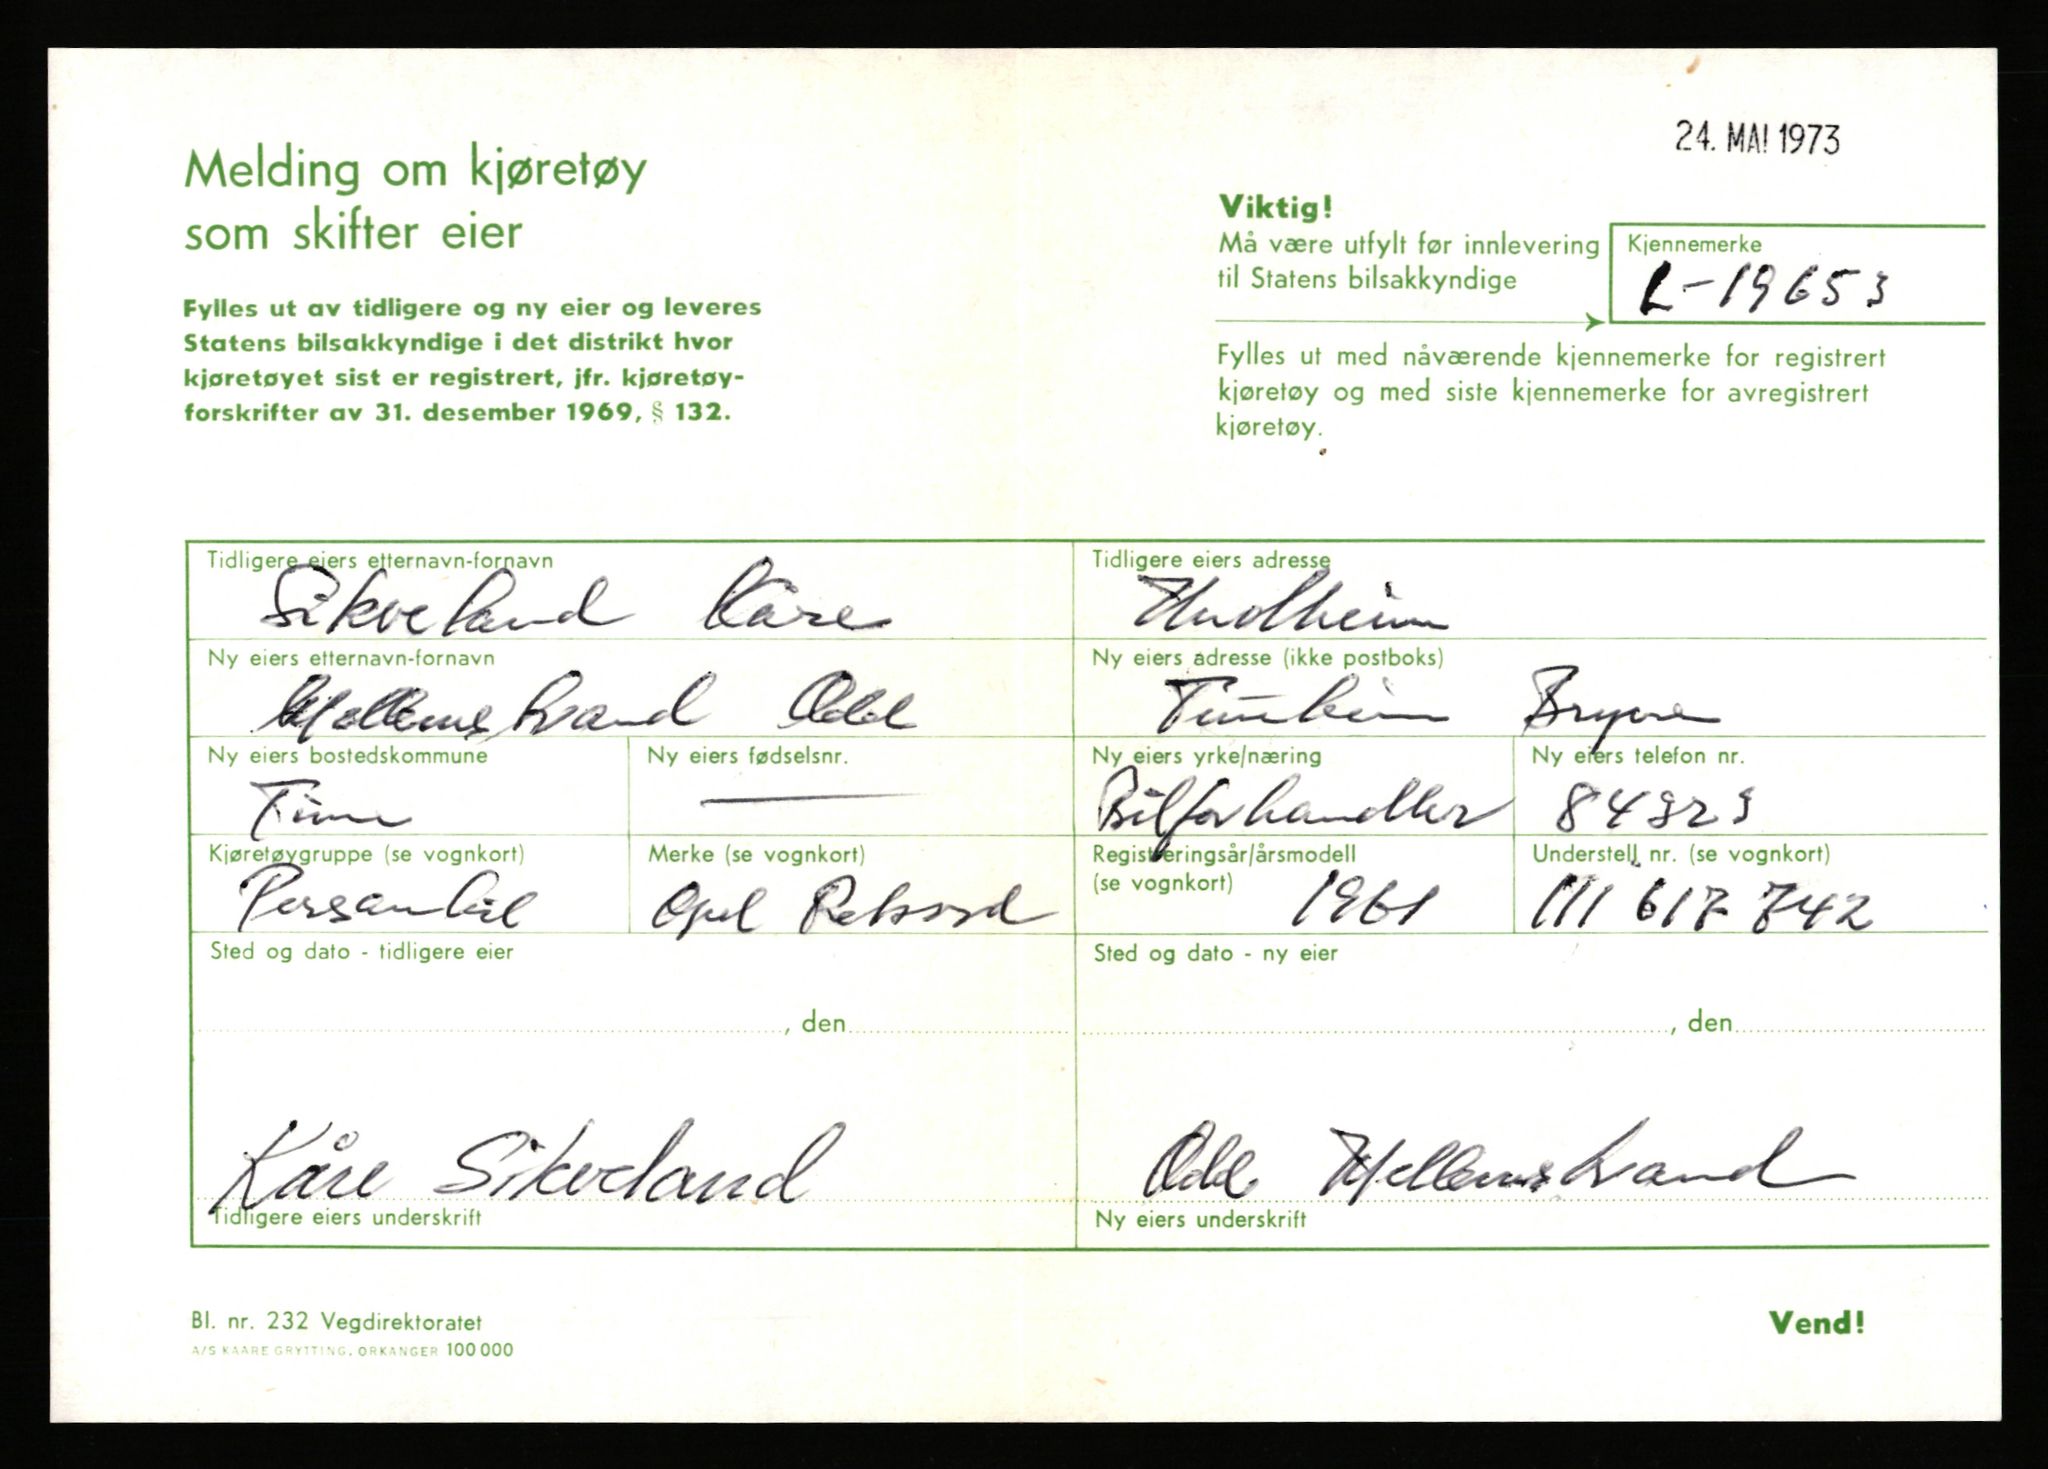 24. MAI 1973
Melding om kjøretøy
som skifter eier
Fylles ut av tidligere og ny eier og leveres
Statens bilsakkyndige i det distrikt hvor
kjøretøyet sist er registrert, jfr. kjøretøy-
forskrifter av 31. desember 1969, § 132.
Viktig!
Må være utfylt før innlevering
til Statens bilsakkyndige
Kjennemerke
L-19653
Fylles ut med nåværende kjennemerke for registrert
kjøretøy og med siste kjennemerke for avregistrert
kjøretøy.
Tidligere eiers etternavn-fornavn
Sikveland Kåre
Tidligere eiers adresse
Ny eiers etternavn-fornavn
Hellemsvand Odd
Ny eiers adresse (ikke postboks)
Bryne
Ny eiers bostedskommune
Time
Ny eiers fødselsnr.
Ny eiers yrke/næring
Bilforhandler
Ny eiers telefon nr.
Kjøretøygruppe (se vognkort)
Personbil
Merke (se vognkort)
Opel Rekord
Registreringsår/årsmodell
(se vognkort)
1961
Understell nr. (se vognkort)
111 617 742
Sted og dato - tidligere eier
, den
Sted og dato - ny eier
, den
Kåre Sikveland
Tidligere eiers underskrift
Odd Hellemsvand
Ny eiers underskrift
Bl. nr. 232 Vegdirektoratet
A/S KAARE GRYTTING, ORKANGER 100 000
Vend!